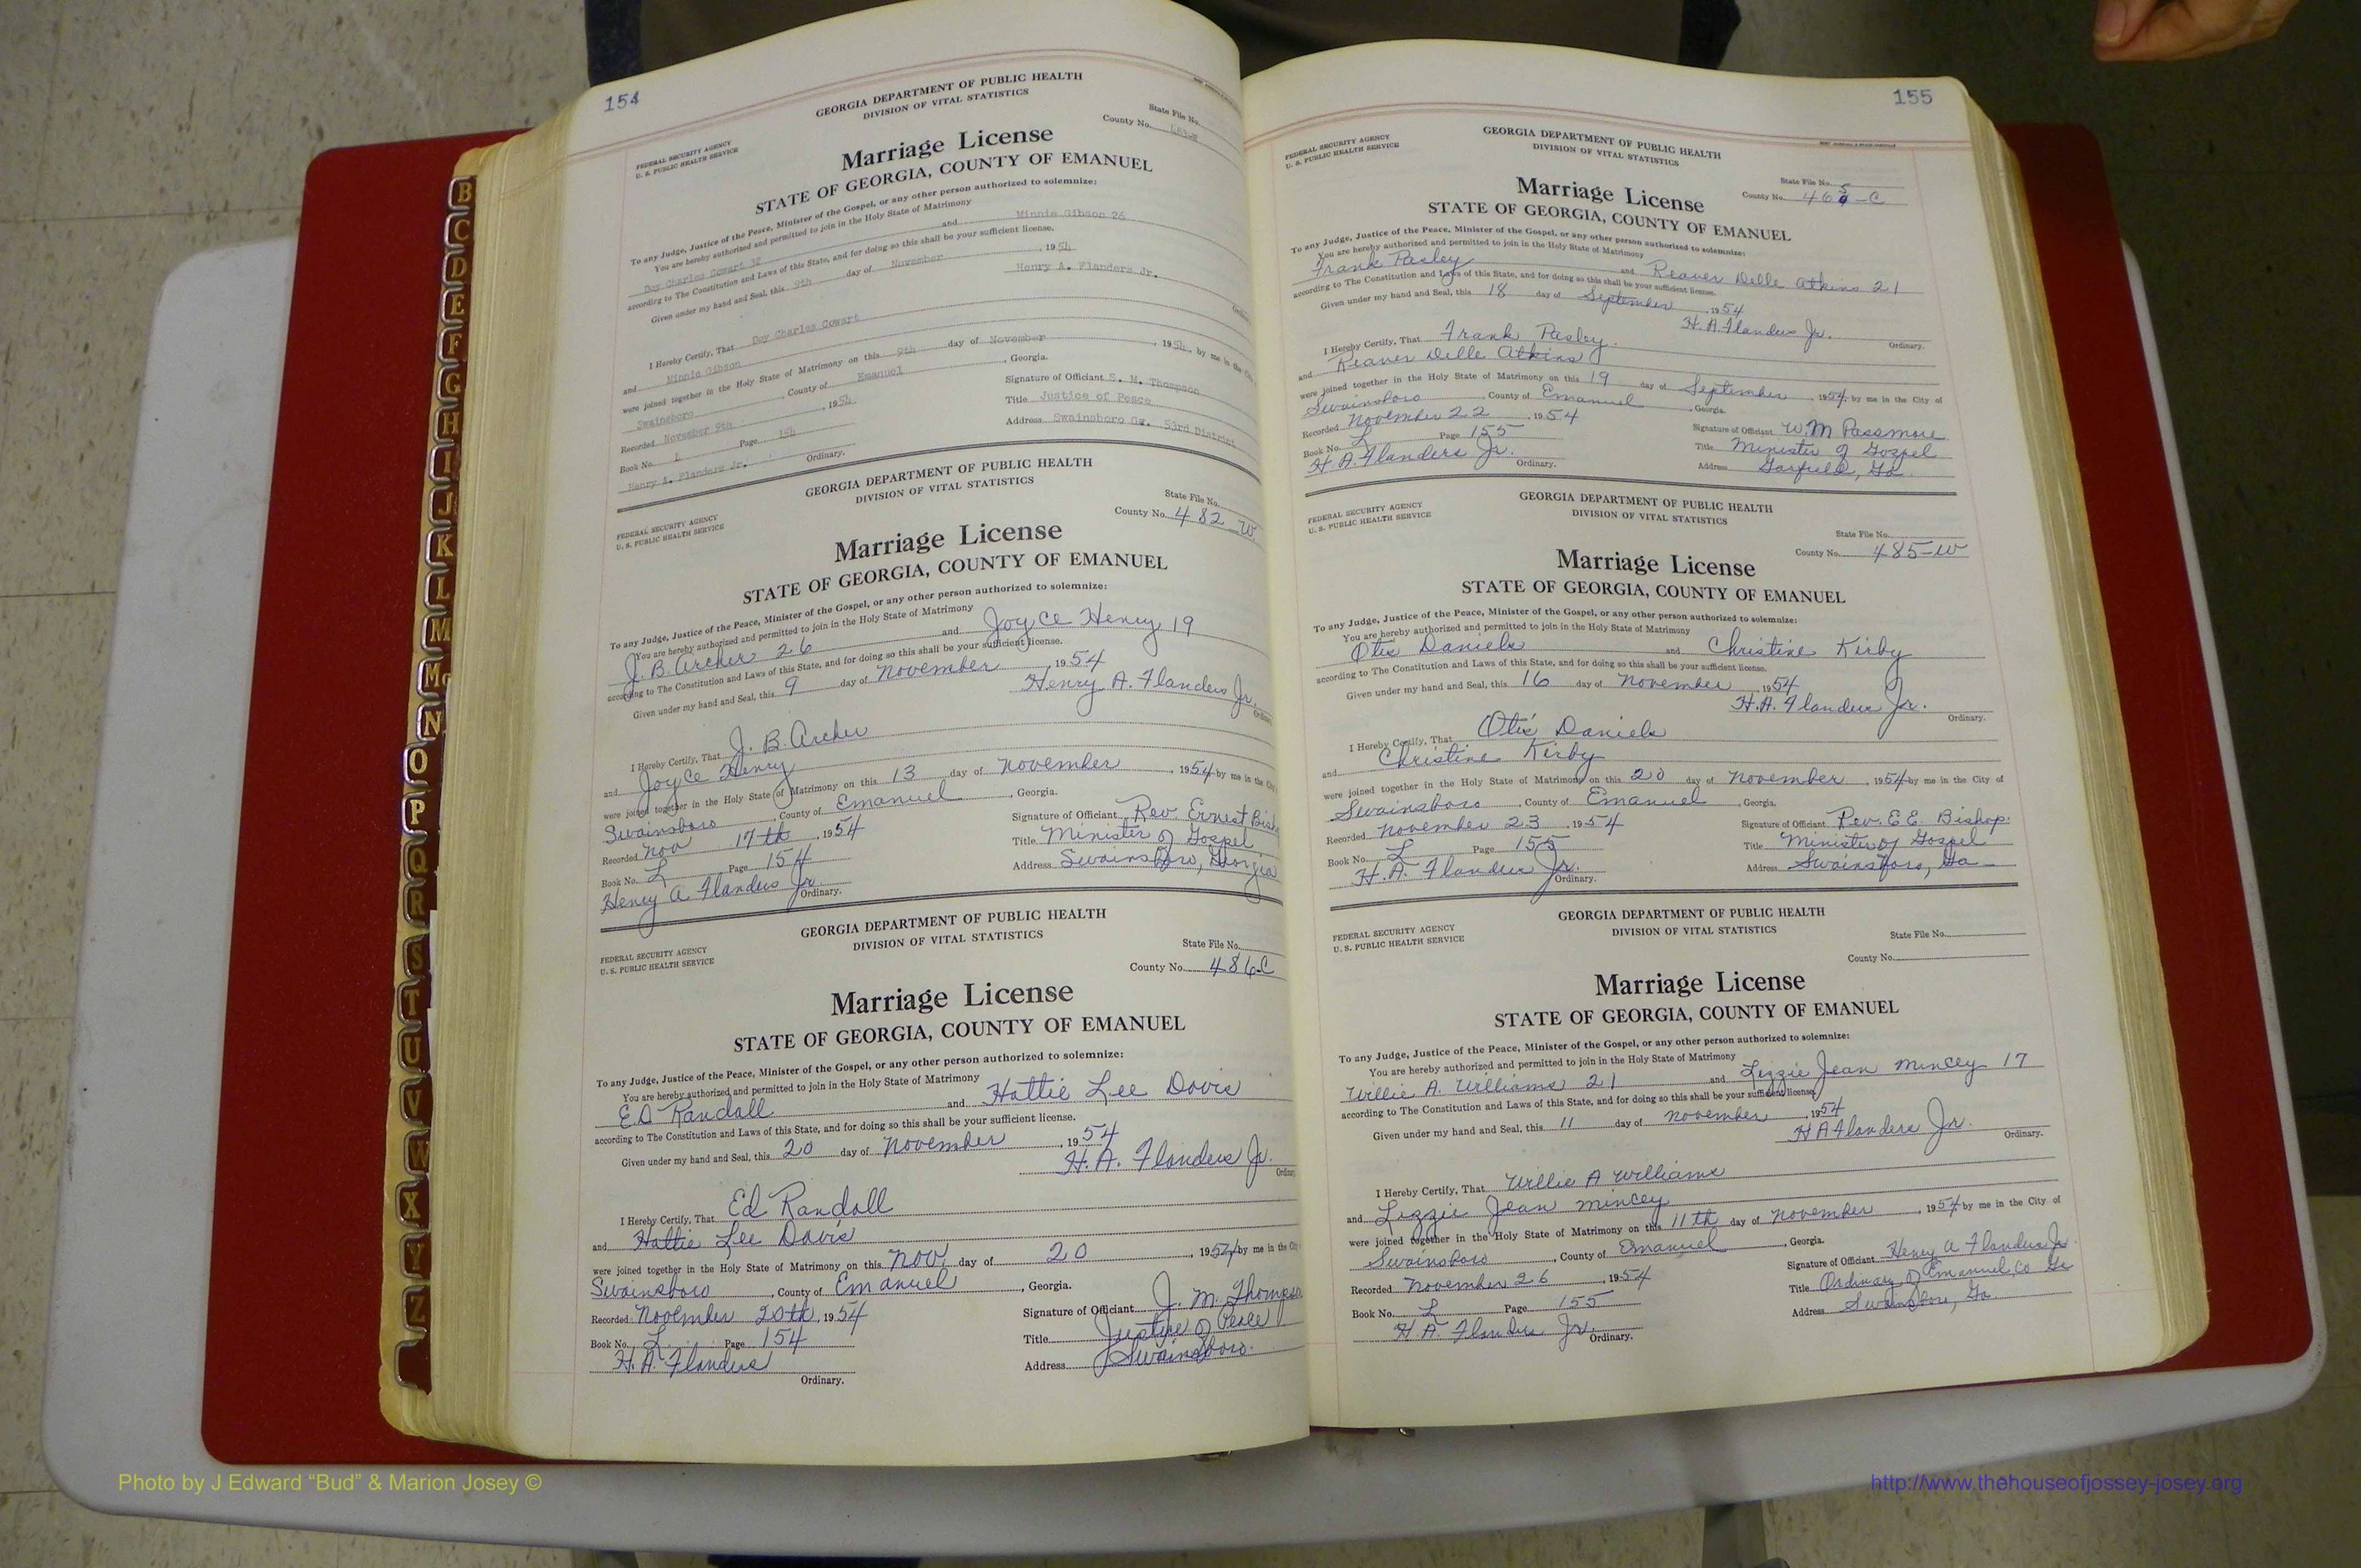 154
GEORGIA DEPARTMENT OF PUBLIC HEALTH
DIVISION OF VITAL STATISTICS
FEDERAL SECURITY AGENCY
U. S. PUBLIC HEALTH SERVICE
State File No.
County No.
Marriage License
STATE OF GEORGIA, COUNTY OF EMANUEL
To any Judge, Justice of the Peace, Minister of the Gospel, or any other person authorized to solemnize:
You are hereby authorized and permitted to join in the Holy State of Matrimony
Charles Cowart 32 and Minnie Gibson 26
according to The Constitution and Laws of this State, and for doing so this shall be your sufficient license.
Given under my hand and Seal, this 9th day of November, 1954
Henry A. Flanders Jr.
I Hereby Certify, That Charles Cowart
and Minnie Gibson
were joined together in the Holy State of Matrimony on this 9th day of November, 1954, by me in the City
Swainsboro, County of Emanuel, Georgia.
Recorded November 9th, 1954
Signature of Officiant S. M. Thompson
Book No. L Page 154
Title Justice of Peace
Henry A. Flanders Jr. Ordinary.
Address Swainsboro Ga. 53rd District
GEORGIA DEPARTMENT OF PUBLIC HEALTH
DIVISION OF VITAL STATISTICS
FEDERAL SECURITY AGENCY
U. S. PUBLIC HEALTH SERVICE
State File No.
County No. 482-W
Marriage License
STATE OF GEORGIA, COUNTY OF EMANUEL
To any Judge, Justice of the Peace, Minister of the Gospel, or any other person authorized to solemnize:
You are hereby authorized and permitted to join in the Holy State of Matrimony
J. B. Archer 26 and Joyce Henry 19
according to The Constitution and Laws of this State, and for doing so this shall be your sufficient license.
Given under my hand and Seal, this 9 day of November, 1954
Henry A. Flanders Jr.
I Hereby Certify, That J. B. Archer
and Joyce Henry
were joined together in the Holy State of Matrimony on this 13 day of November, 1954 by me in the City
Swainsboro, County of Emanuel, Georgia.
Recorded Nov 17th, 1954
Signature of Officiant Rev. Ernest Bish
Book No. L Page 154
Title Minister of Gospel
Henry A. Flanders Jr. Ordinary.
Address Swainsboro, Georgia
GEORGIA DEPARTMENT OF PUBLIC HEALTH
DIVISION OF VITAL STATISTICS
FEDERAL SECURITY AGENCY
U. S. PUBLIC HEALTH SERVICE
State File No.
County No. 486-C
Marriage License
STATE OF GEORGIA, COUNTY OF EMANUEL
To any Judge, Justice of the Peace, Minister of the Gospel, or any other person authorized to solemnize:
You are hereby authorized and permitted to join in the Holy State of Matrimony
E.D Randall and Hattie Lee Davis
according to The Constitution and Laws of this State, and for doing so this shall be your sufficient license.
Given under my hand and Seal, this 20 day of November, 1954
H. A. Flanders Jr.
I Hereby Certify, That Ed Randall
and Hattie Lee Davis
were joined together in the Holy State of Matrimony on this Nov. day of 20, 1954 by me in the
Swainsboro, County of Emanuel, Georgia.
Recorded November 20th, 1954
Signature of Officiant J. M. Thompso
Book No. L Page 154
Title Justice of Peace
H. A. Flanders Ordinary.
Address Swainsboro.
155
GEORGIA DEPARTMENT OF PUBLIC HEALTH
DIVISION OF VITAL STATISTICS
FEDERAL SECURITY AGENCY
U. S. PUBLIC HEALTH SERVICE
State File No.
County No. 465-C
Marriage License
STATE OF GEORGIA, COUNTY OF EMANUEL
To any Judge, Justice of the Peace, Minister of the Gospel, or any other person authorized to solemnize:
You are hereby authorized and permitted to join in the Holy State of Matrimony
Frank Pasley and Reaver Delle Atkins 21
according to The Constitution and Laws of this State, and for doing so this shall be your sufficient license.
Given under my hand and Seal, this 18 day of September, 1954
H. A. Flanders Jr.
Ordinary.
I Hereby Certify, That Frank Pasley
and Reaver Delle Atkins
were joined together in the Holy State of Matrimony on this 19 day of September, 1954, by me in the City of
Swainsboro, County of Emanuel, Georgia.
Recorded November 22, 1954
Signature of Officiant W. M Passmore
Book No. L Page 155
Title Minister of Gospel
H. A. Flanders Jr. Ordinary.
Address Garfield, Ga.
GEORGIA DEPARTMENT OF PUBLIC HEALTH
DIVISION OF VITAL STATISTICS
FEDERAL SECURITY AGENCY
U. S. PUBLIC HEALTH SERVICE
State File No.
County No. 485-W
Marriage License
STATE OF GEORGIA, COUNTY OF EMANUEL
To any Judge, Justice of the Peace, Minister of the Gospel, or any other person authorized to solemnize:
You are hereby authorized and permitted to join in the Holy State of Matrimony
Otis Daniels and Christine Kirby
according to The Constitution and Laws of this State, and for doing so this shall be your sufficient license.
Given under my hand and Seal, this 16 day of November, 1954
H. A. Flanders Jr.
Ordinary.
I Hereby Certify, That Otis Daniels
and Christine Kirby
were joined together in the Holy State of Matrimony on this 20 day of November, 1954 by me in the City of
Swainsboro, County of Emanuel, Georgia.
Recorded November 23, 1954
Signature of Officiant Rev. E E. Bishop.
Book No. L Page 155
Title Minister of Gospel
H. A. Flanders Jr. Ordinary.
Address Swainsboro, Ga
GEORGIA DEPARTMENT OF PUBLIC HEALTH
DIVISION OF VITAL STATISTICS
FEDERAL SECURITY AGENCY
U. S. PUBLIC HEALTH SERVICE
State File No.
County No.
Marriage License
STATE OF GEORGIA, COUNTY OF EMANUEL
To any Judge, Justice of the Peace, Minister of the Gospel, or any other person authorized to solemnize:
You are hereby authorized and permitted to join in the Holy State of Matrimony
Willie A. Williams 21 and Lizzie Jean Mincey 17
according to The Constitution and Laws of this State, and for doing so this shall be your sufficient license.
Given under my hand and Seal, this 11 day of November, 1954
H A Flanders Jr.
Ordinary.
I Hereby Certify, That Willie A Williams
and Lizzie Jean Mincey
were joined together in the Holy State of Matrimony on this 11th day of November, 1954 by me in the City of
Swainsboro, County of Emanuel, Georgia.
Recorded November 26, 1954
Signature of Officiant Henry A Flanders Jr.
Book No. L Page 155
Title Ordinary of Emanuel Co Ga
H. A. Flanders Jr. Ordinary.
Address Swainsboro, Ga.
B
C
D
E
F
G
H
I
J
K
L
M
Mc
N
O
P
Q
R
S
T
U
V
W
X
Y
Z
Photo by J Edward “Bud” & Marion Josey ©
http://www.thehouseofjossey-josey.org